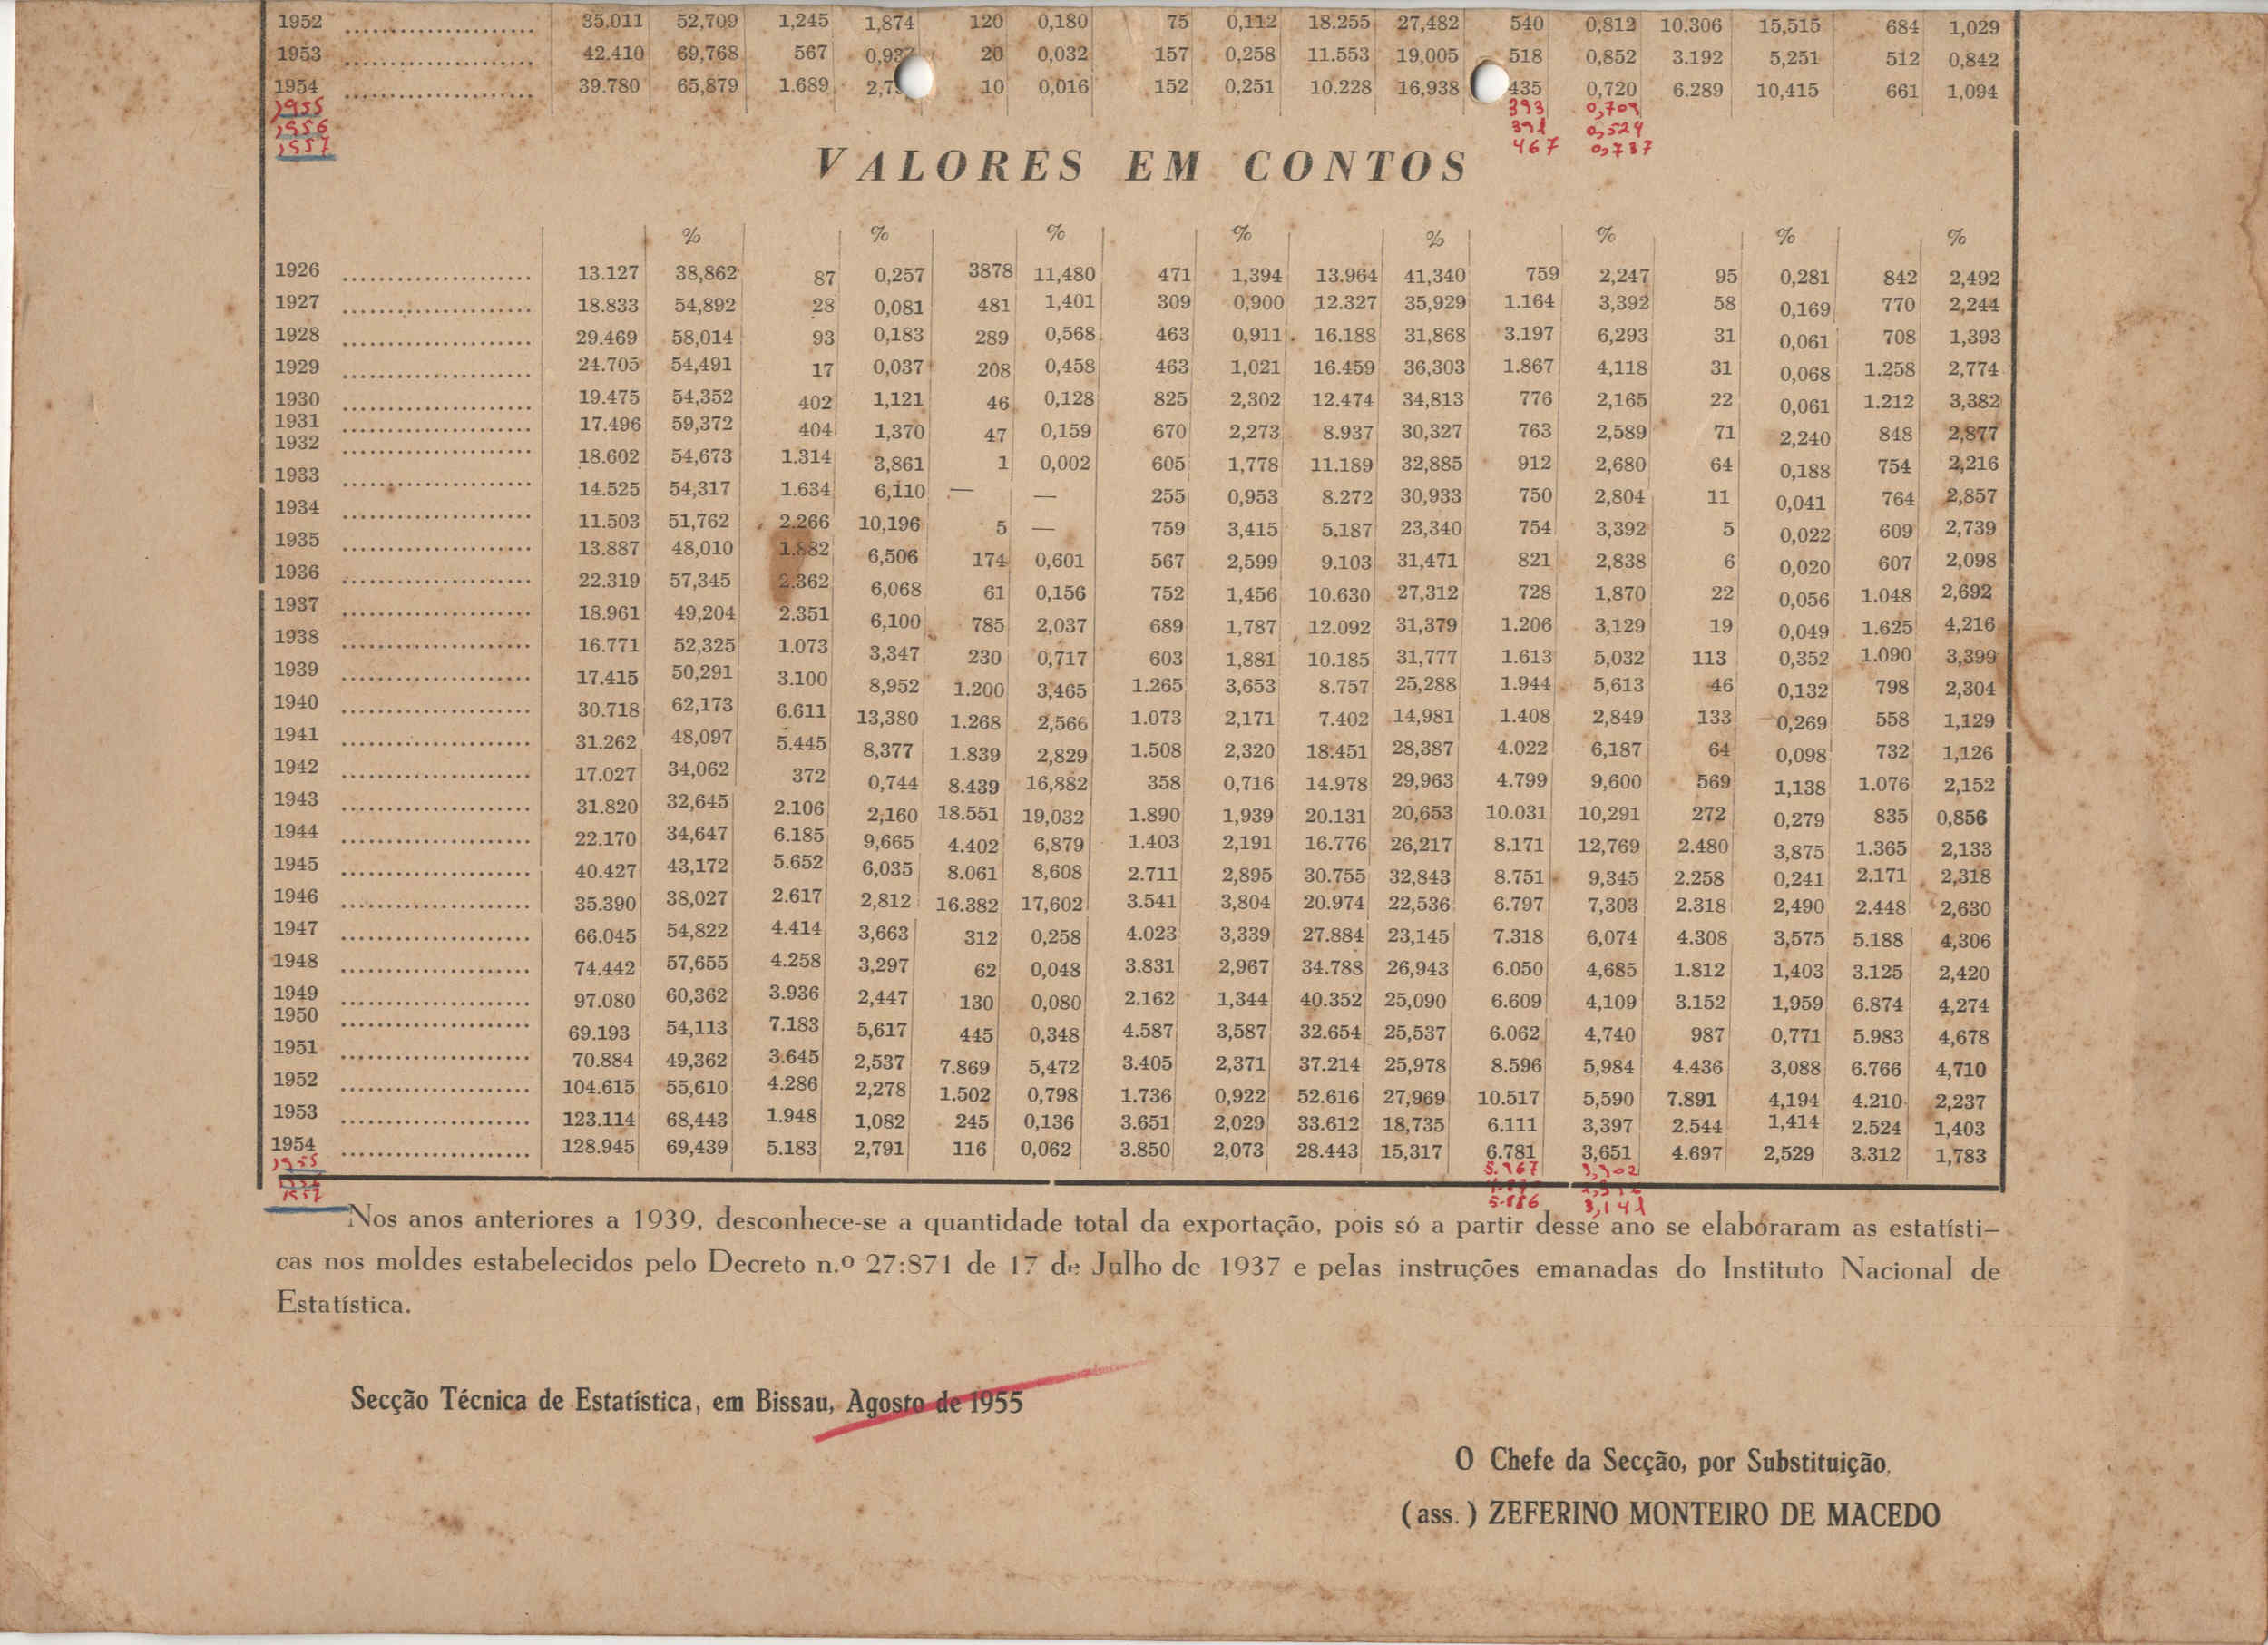 1952 ..................... 35.011 52,709 1,245 1,874 120 0,180 75 0,112 18.255 27,482 540 0,812 10.306 15,515 684 1,029
1953 ..................... 42.410 69,768 567 20 0,032 157 0,258 11.553 19,005 518 0,852 3.192 5,251 512 0,842
1954 ..................... 39.780 65,879 1.689 10 0,016 152 0,251 10.228 16,938 435 0,720 6.289 10,415 661 1,094
1955 393 0,709
1956 391 0,524
1957 467 0,737
VALORES EM CONTOS
% % % % % % % %
1926 ..................... 13.127 38,862 87 0,257 3878 11,480 471 1,394 13.964 41,340 759 2,247 95 0,281 842 2,492
1927 ..................... 18.833 54,892 28 0,081 481 1,401 309 0,900 12.327 35,929 1.164 3,392 58 0,169 770 2,244
1928 ..................... 29.469 58,014 93 0,183 289 0,568 463 0,911 16.188 31,868 3.197 6,293 31 0,061 708 1,393
1929 ..................... 24.705 54,491 17 0,037 208 0,458 463 1,021 16.459 36,303 1.867 4,118 31 0,068 1.258 2,774
1930 ..................... 19.475 54,352 402 1,121 46 0,128 825 2,302 12.474 34,813 776 2,165 22 0,061 1.212 3,382
1931 ..................... 17.496 59,372 404 1,370 47 0,159 670 2,273 8.937 30,327 763 2,589 71 2,240 848 2,877
1932 ..................... 18.602 54,673 1.314 3,861 1 0,002 605 1,778 11.189 32,885 912 2,680 64 0,188 754 2,216
1933 ..................... 14.525 54,317 1.634 6,110 — — 255 0,953 8.272 30,933 750 2,804 11 0,041 764 2,857
1934 ..................... 11.503 51,762 2.266 10,196 5 — 759 3,415 5.187 23,340 754 3,392 5 0,022 609 2,739
1935 ..................... 13.887 48,010 1.882 6,506 174 0,601 567 2,599 9.103 31,471 821 2,838 6 0,020 607 2,098
1936 ..................... 22.319 57,345 2.362 6,068 61 0,156 752 1,456 10.630 27,312 728 1,870 22 0,056 1.048 2,692
1937 ..................... 18.961 49,204 2.351 6,100 785 2,037 689 1,787 12.092 31,379 1.206 3,129 19 0,049 1.625 4,216
1938 ..................... 16.771 52,325 1.073 3,347 230 0,717 603 1,881 10.185 31,777 1.613 5,032 113 0,352 1.090 3,399
1939 ..................... 17.415 50,291 3.100 8,952 1.200 3,465 1.265 3,653 8.757 25,288 1.944 5,613 46 0,132 798 2,304
1940 ..................... 30.718 62,173 6.611 13,380 1.268 2,566 1.073 2,171 7.402 14,981 1.408 2,849 133 0,269 558 1,129
1941 ..................... 31.262 48,097 5.445 8,377 1.839 2,829 1.508 2,320 18.451 28,387 4.022 6,187 64 0,098 732 1,126
1942 ..................... 17.027 34,062 372 0,744 8.439 16,882 358 0,716 14.978 29,963 4.799 9,600 569 1,138 1.076 2,152
1943 ..................... 31.820 32,645 2.106 2,160 18.551 19,032 1.890 1,939 20.131 20,653 10.031 10,291 272 0,279 835 0,856
1944 ..................... 22.170 34,647 6.185 9,665 4.402 6,879 1.403 2,191 16.776 26,217 8.171 12,769 2.480 3,875 1.365 2,133
1945 ..................... 40.427 43,172 5.652 6,035 8.061 8,608 2.711 2,895 30.755 32,843 8.751 9,345 2.258 0,241 2.171 2,318
1946 ..................... 35.390 38,027 2.617 2,812 16.382 17,602 3.541 3,804 20.974 22,536 6.797 7,303 2.318 2,490 2.448 2,630
1947 ..................... 66.045 54,822 4.414 3,663 312 0,258 4.023 3,339 27.884 23,145 7.318 6,074 4.308 3,575 5.188 4,306
1948 ..................... 74.442 57,655 4.258 3,297 62 0,048 3.831 2,967 34.788 26,943 6.050 4,685 1.812 1,403 3.125 2,420
1949 ..................... 97.080 60,362 3.936 2,447 130 0,080 2.162 1,344 40.352 25,090 6.609 4,109 3.152 1,959 6.874 4,274
1950 ..................... 69.193 54,113 7.183 5,617 445 0,348 4.587 3,587 32.654 25,537 6.062 4,740 987 0,771 5.983 4,678
1951 ..................... 70.884 49,362 3.645 2,537 7.869 5,472 3.405 2,371 37.214 25,978 8.596 5,984 4.436 3,088 6.766 4,710
1952 ..................... 104.615 55,610 4.286 2,278 1.502 0,798 1.736 0,922 52.616 27,969 10.517 5,590 7.891 4,194 4.210 2,237
1953 ..................... 123.114 68,443 1.948 1,082 245 0,136 3.651 2,029 33.612 18,735 6.111 3,397 2.544 1,414 2.524 1,403
1954 ..................... 128.945 69,439 5.183 2,791 116 0,062 3.850 2,073 28.443 15,317 6.781 3,651 4.697 2,529 3.312 1,783
1955 3,302
1957 3,141
Nos anos anteriores a 1939, desconhece-se a quantidade total da exportação, pois só a partir desse ano se elaboraram as estatísti-
cas nos moldes estabelecidos pelo Decreto n.º 27:871 de 17 de Julho de 1937 e pelas instruções emanadas do Instituto Nacional de
Estatística.
Secção Técnica de Estatística, em Bissau, Agosto de 1955
O Chefe da Secção, por Substituição,
(ass.) ZEFERINO MONTEIRO DE MACEDO